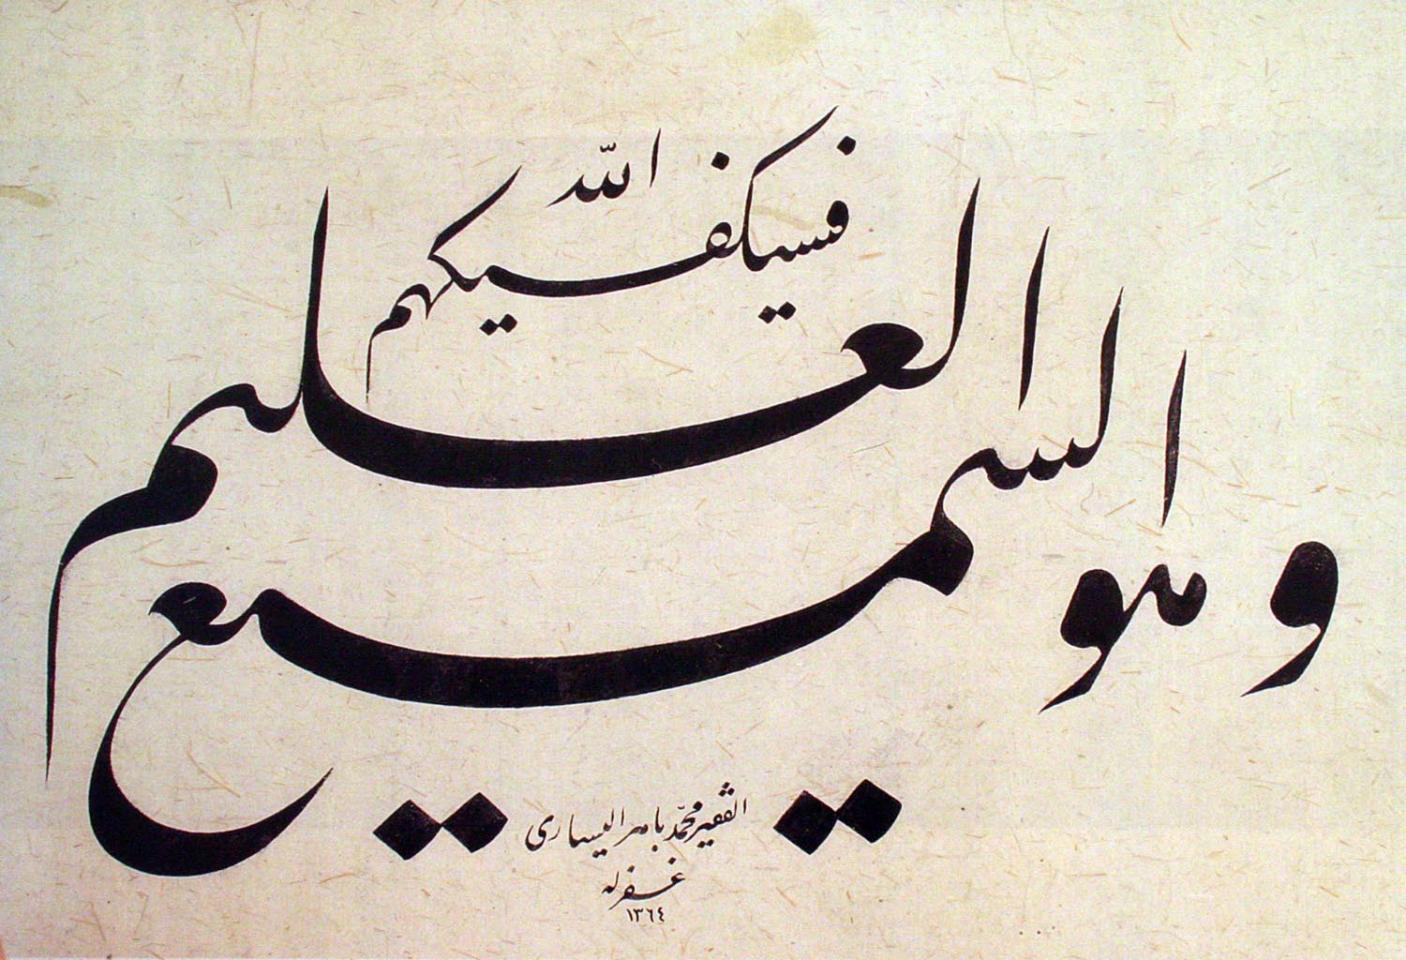 فسيكفيكهم الله
وهو السميع العليم
الفقير محمّد باهر اليساري
غفرله
١٣٦٤